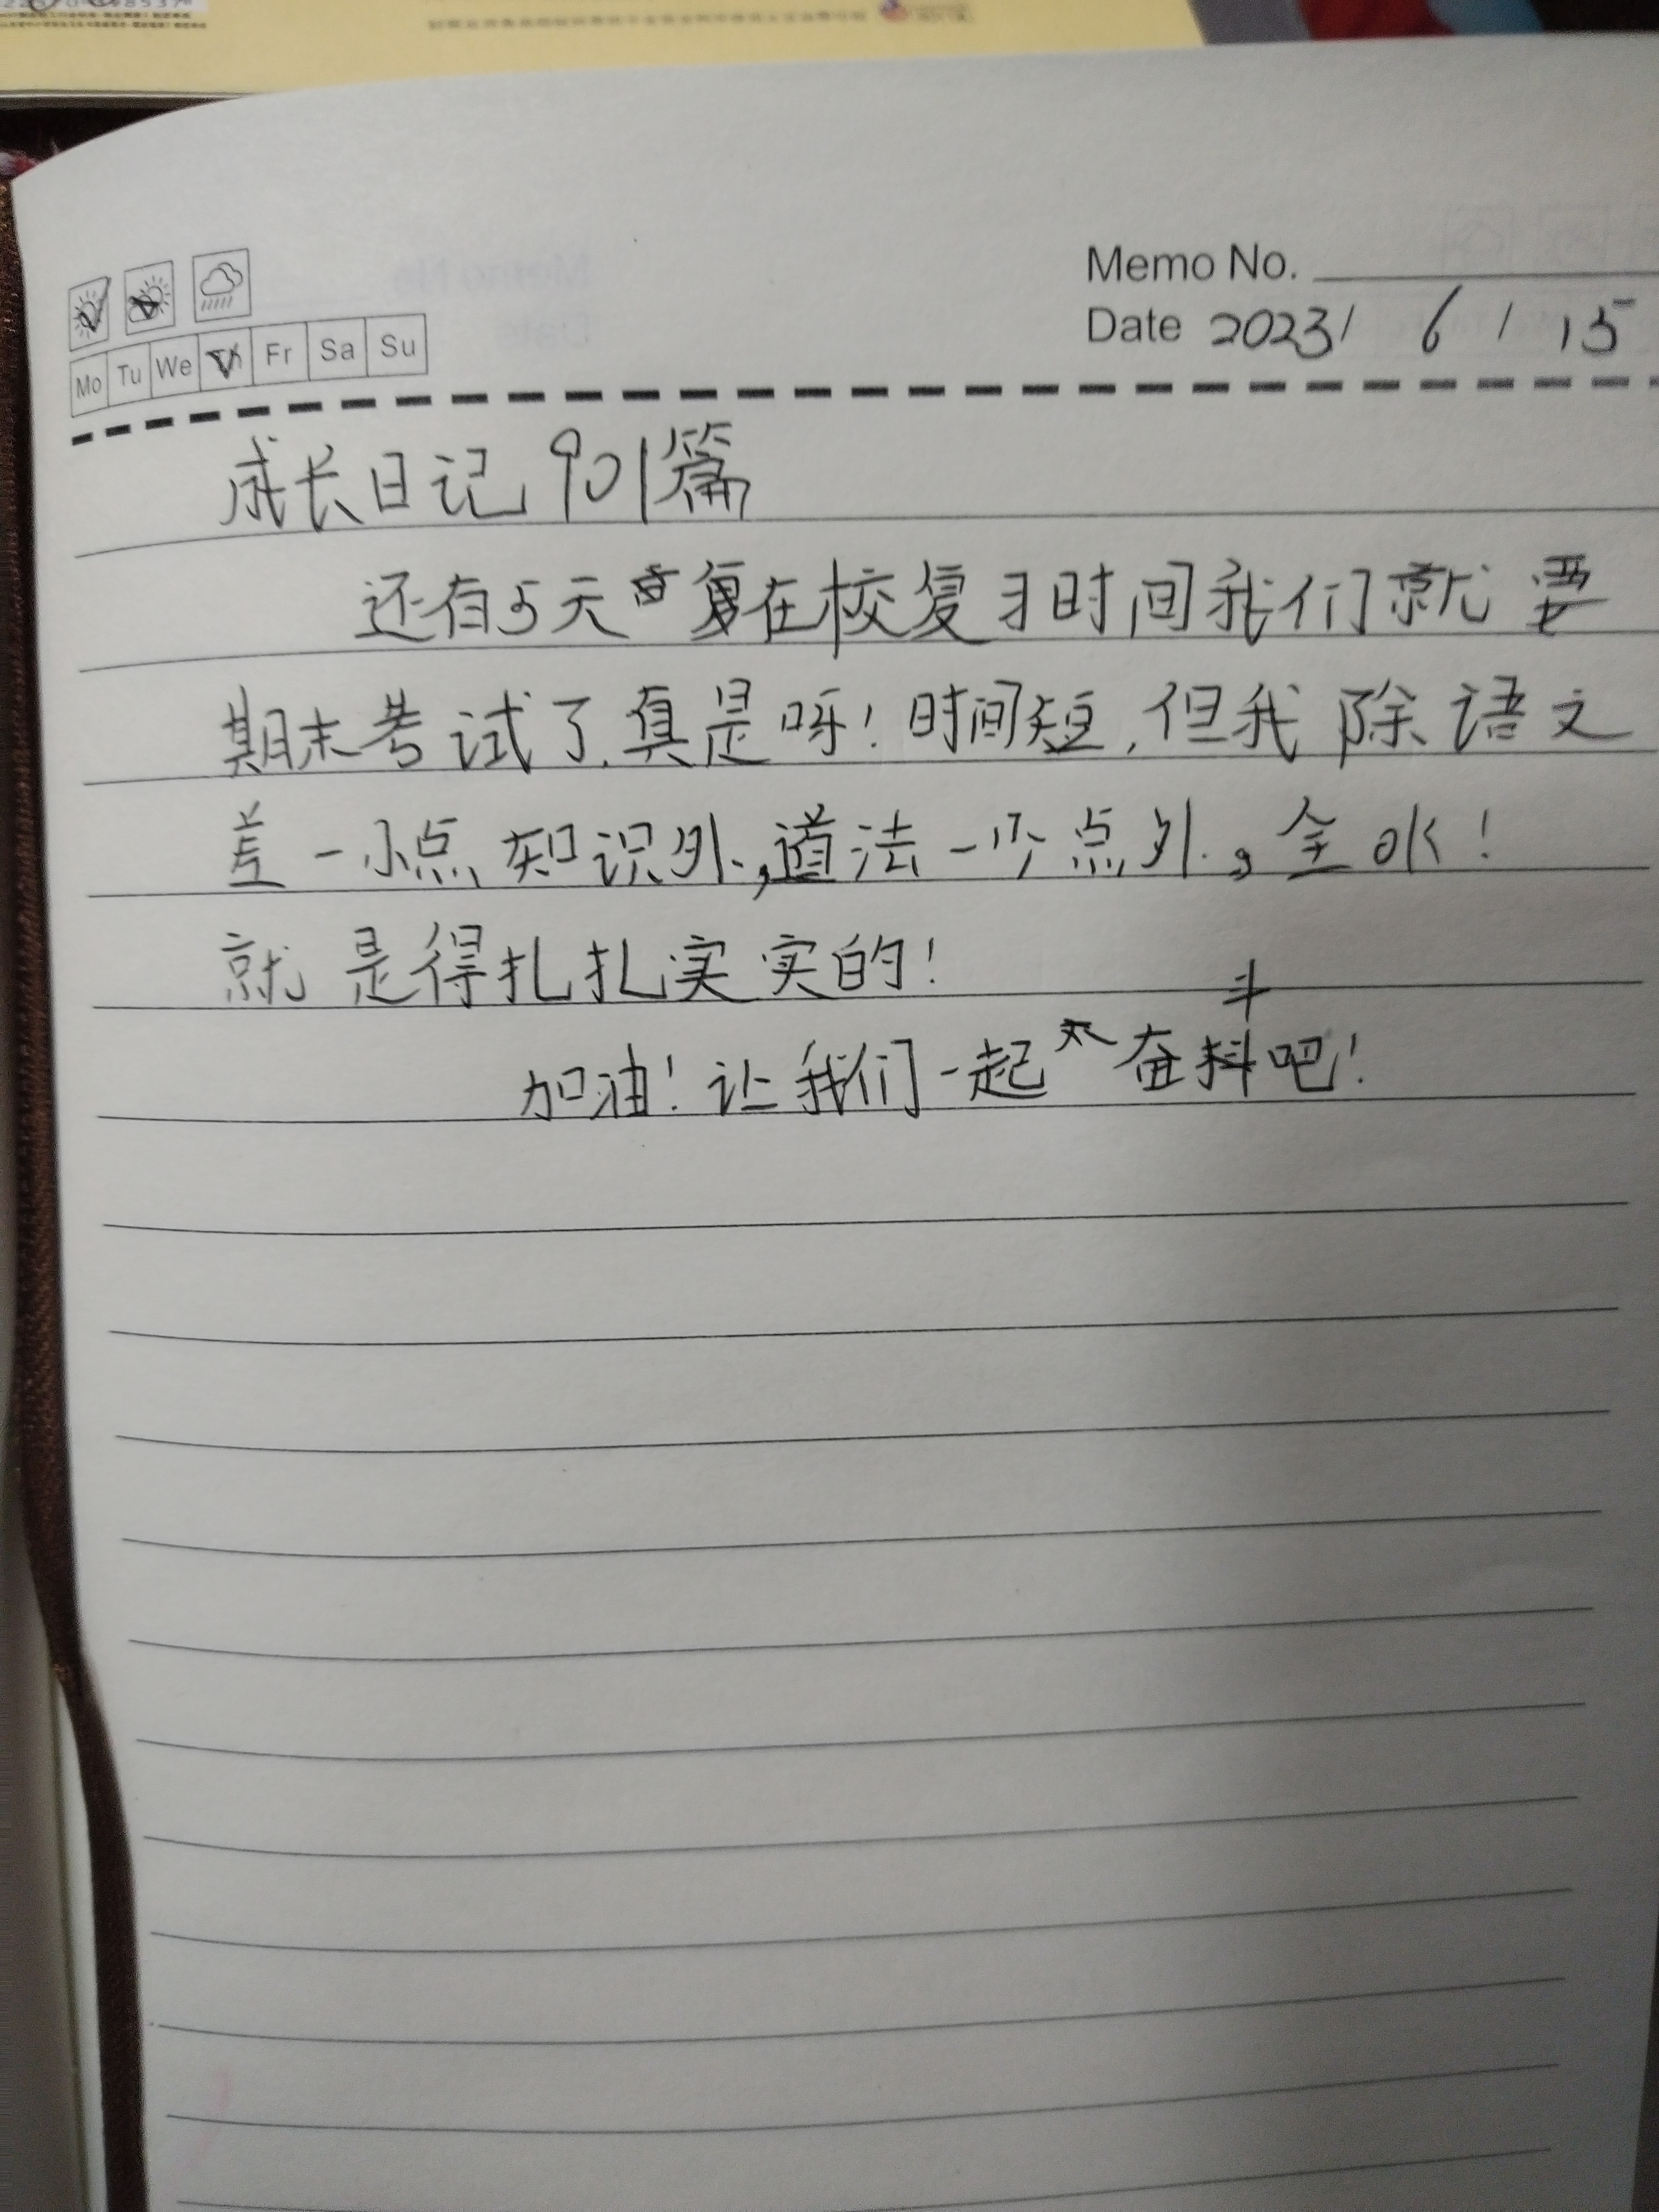 Memo No.
Date 2023/ 6 / 15
Mo Tu We Th Fr Sa Su
成长日记901篇
还有5天在校复习时间我们就要
期末考试了.真是呀!时间短,但我除语文
差一小点知识外,道法一少点外,全ok!
就是得扎扎实实的!
斗
加油!让我们一起奋抖吧!